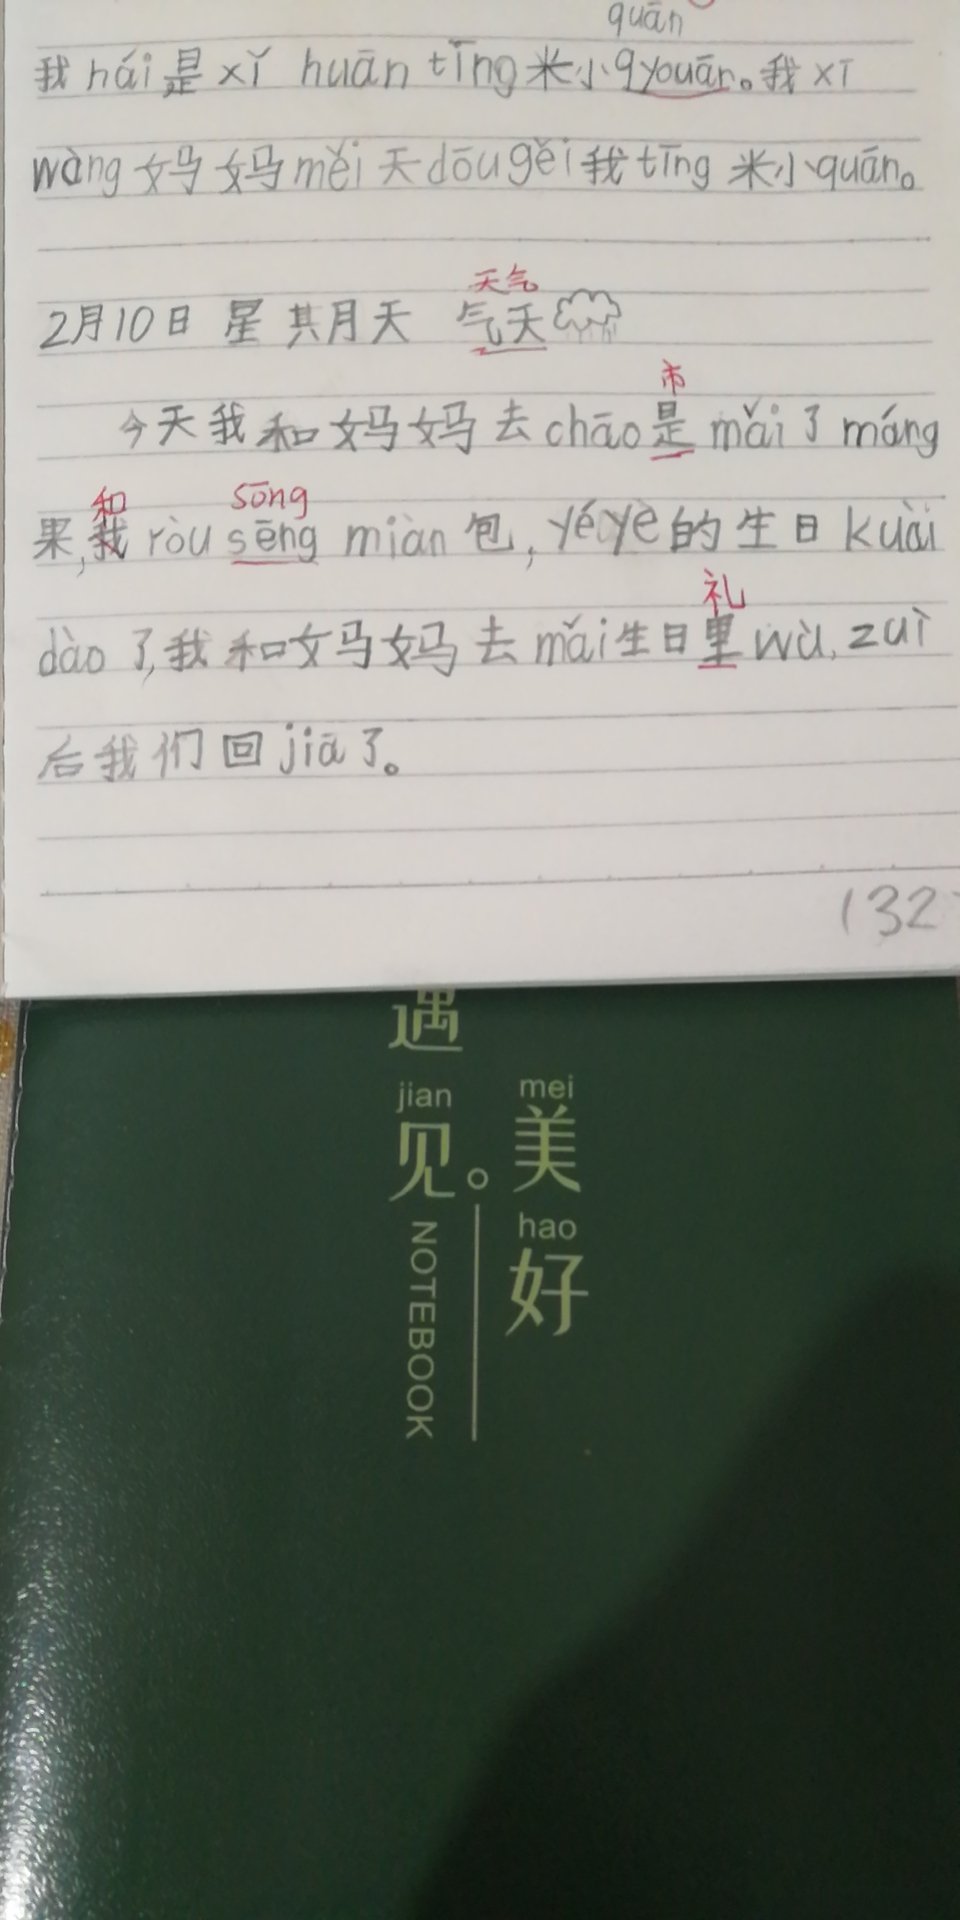 quān
我hái是xǐ huān tīng米小qyouān。我xī
wàng妈妈měi天dōu gěi我tīng米小quān。
天气
2月10日 星期天 气天
市
今天我和妈妈去chāo是mǎi了máng
和 sōng
果,我ròu sēng miàn包,yéye的生日kuài
礼
dào了,我和妈妈去mǎi生日里wù,zuì
后我们回jiā了。
132
遇
jian
见。
NOTEBOOK
mei
美
hao
好